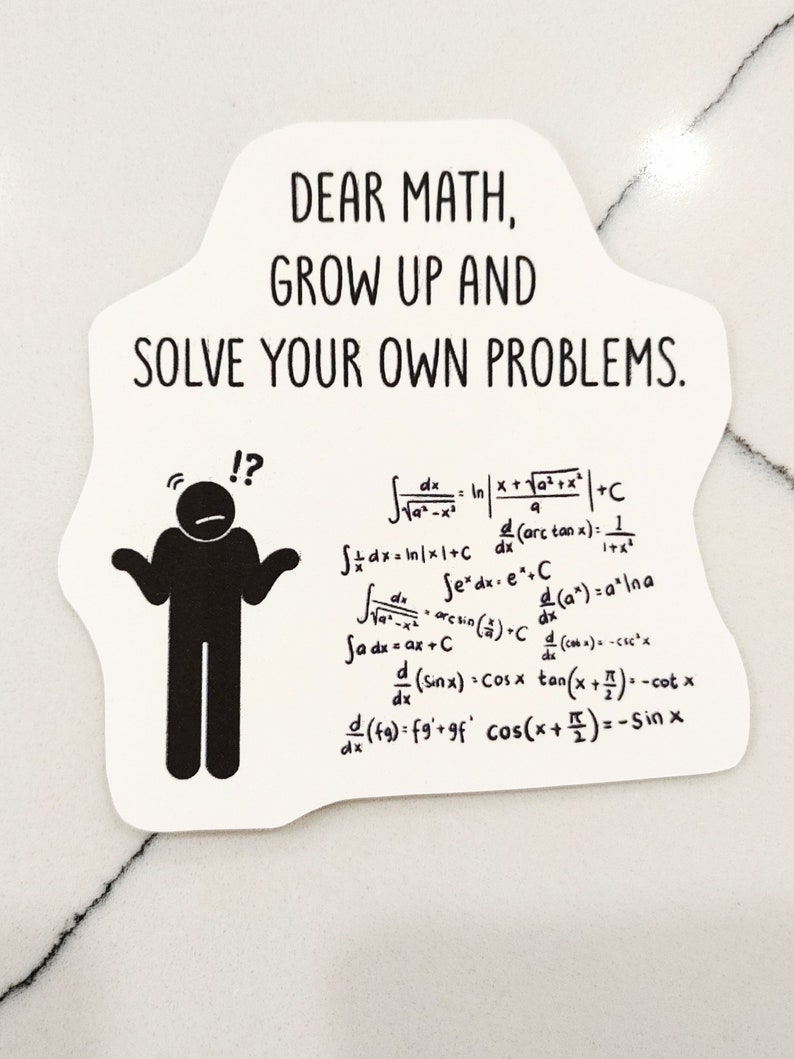 DEAR MATH,
GROW UP AND
SOLVE YOUR OWN PROBLEMS.
!?
∫ dx/√(a² - x²) = ln |(x + √(a² + x²))/a| + C
d/dx (arc tan x) = 1/(1+x²)
∫ 1/x dx = ln|x| + C
∫e^x dx = e^x + C
d/dx (a^x) = a^x ln a
∫ dx/√(a² - x²) = arc sin(x/a) + C
∫a dx = ax + C
d/dx (cot x) = -csc² x
d/dx (sin x) = cos x
tan(x + π/2) = -cot x
d/dx (fg) = fg' + gf'
cos(x + π/2) = -sin x